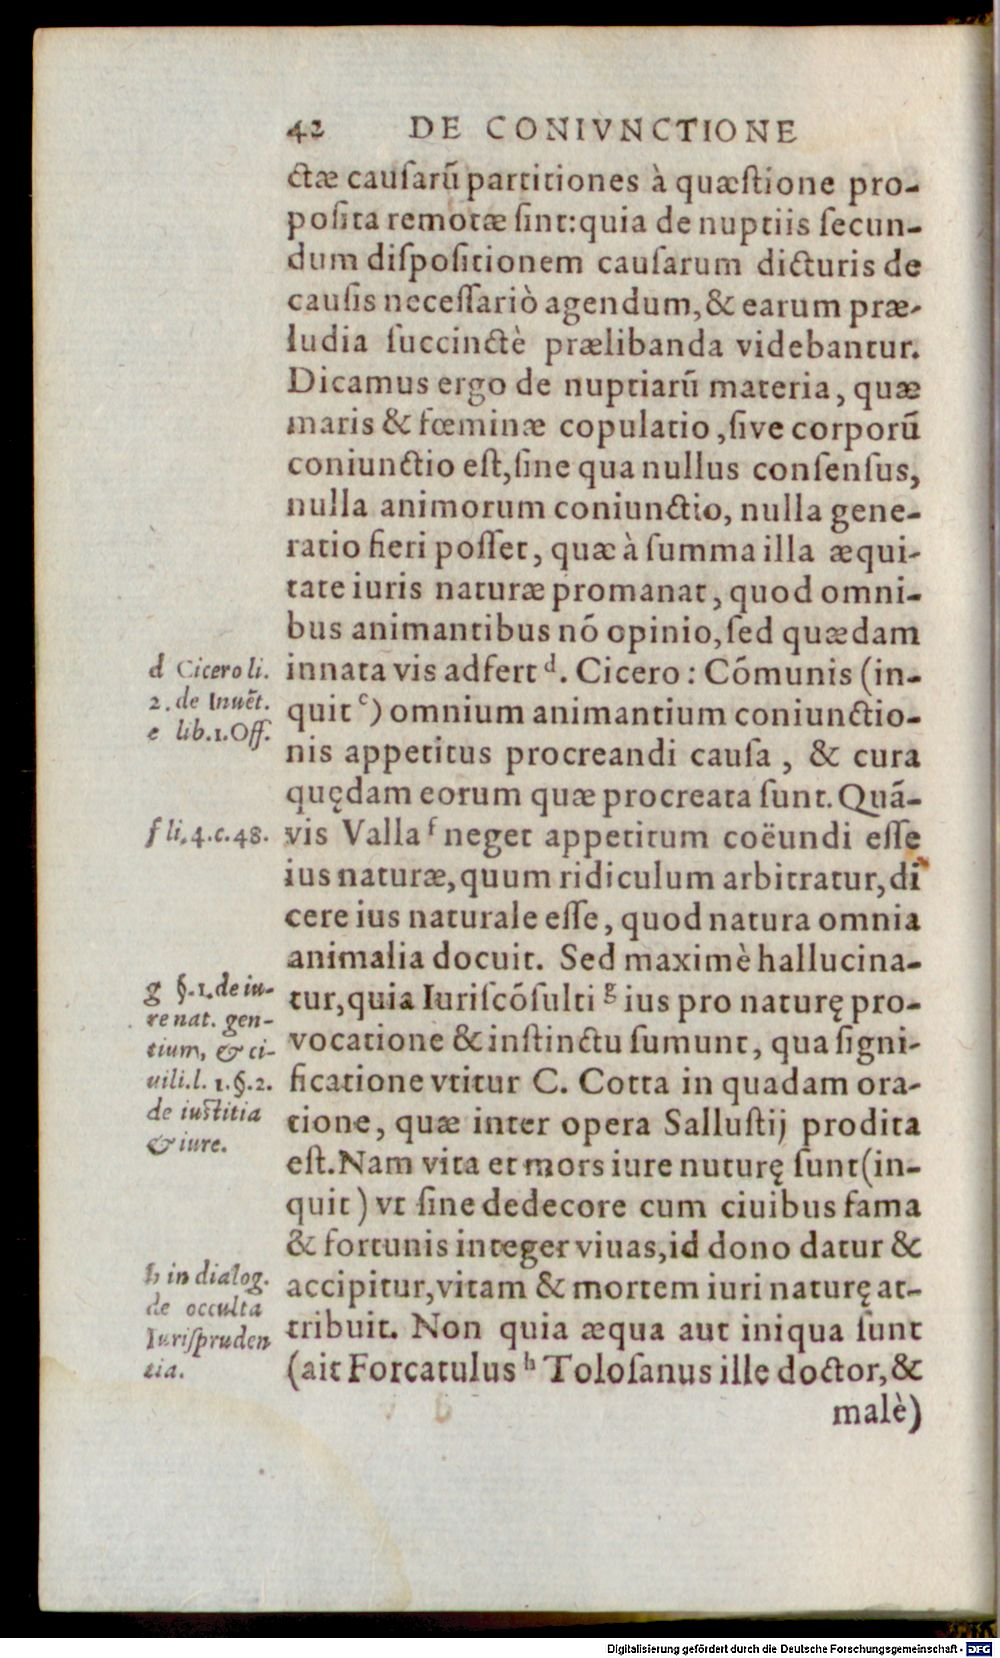 42 DE CONIVNCTIONE
ctæ cauſarū partitiones à quæſtione pro-
poſita remotæ ſint:quia de nuptiis ſecun-
dum diſpoſitionem cauſarum dicturis de
cauſis neceſſariò agendum,& earum præ-
ludia ſuccinctè prælibanda videbantur.
Dicamus ergo de nuptiarū materia, quæ
maris & fœminæ copulatio,ſive corporū
coniunctio eſt,ſine qua nullus conſenſus,
nulla animorum coniunctio, nulla gene-
ratio fieri poſſet, quæ à ſumma illa æqui-
tate iuris naturæ promanat, quod omni-
bus animantibus nō opinio,ſed quædam
innata vis adfert d. Cicero: Cōmunis (in-
quit e) omnium animantium coniunctio-
nis appetitus procreandi cauſa, & cura
quędam eorum quæ procreata ſunt. Quā-
vis Valla f neget appetitum coëundi eſſe
ius naturæ,quum ridiculum arbitratur,di
cere ius naturale eſſe, quod natura omnia
animalia docuit. Sed maximè hallucina-
tur,quia Iuriſcōſulti g ius pro naturę pro-
vocatione & inſtinctu ſumunt, qua ſigni-
ficatione vtitur C. Cotta in quadam ora-
tione, quæ inter opera Salluſtij prodita
eſt. Nam vita et mors iure nuturę ſunt(in-
quit) vt ſine dedecore cum ciuibus fama
& fortunis integer viuas,id dono datur &
accipitur,vitam & mortem iuri naturę at-
tribuit. Non quia æqua aut iniqua ſunt
(ait Forcatulus h Toloſanus ille doctor,&
malè)
d Cicero li.
2. de Inuēt.
e lib.1.Off.
f li.4.c.48.
g §.1.de iu-
re nat. gen-
tium, & ci-
uili.l. 1.§.2.
de iuſtitia
& iure.
h in dialog.
de occulta
Iuriſpruden
tia.
Digitalisierung gefördert durch die Deutsche Forschungsgemeinschaft - DFG